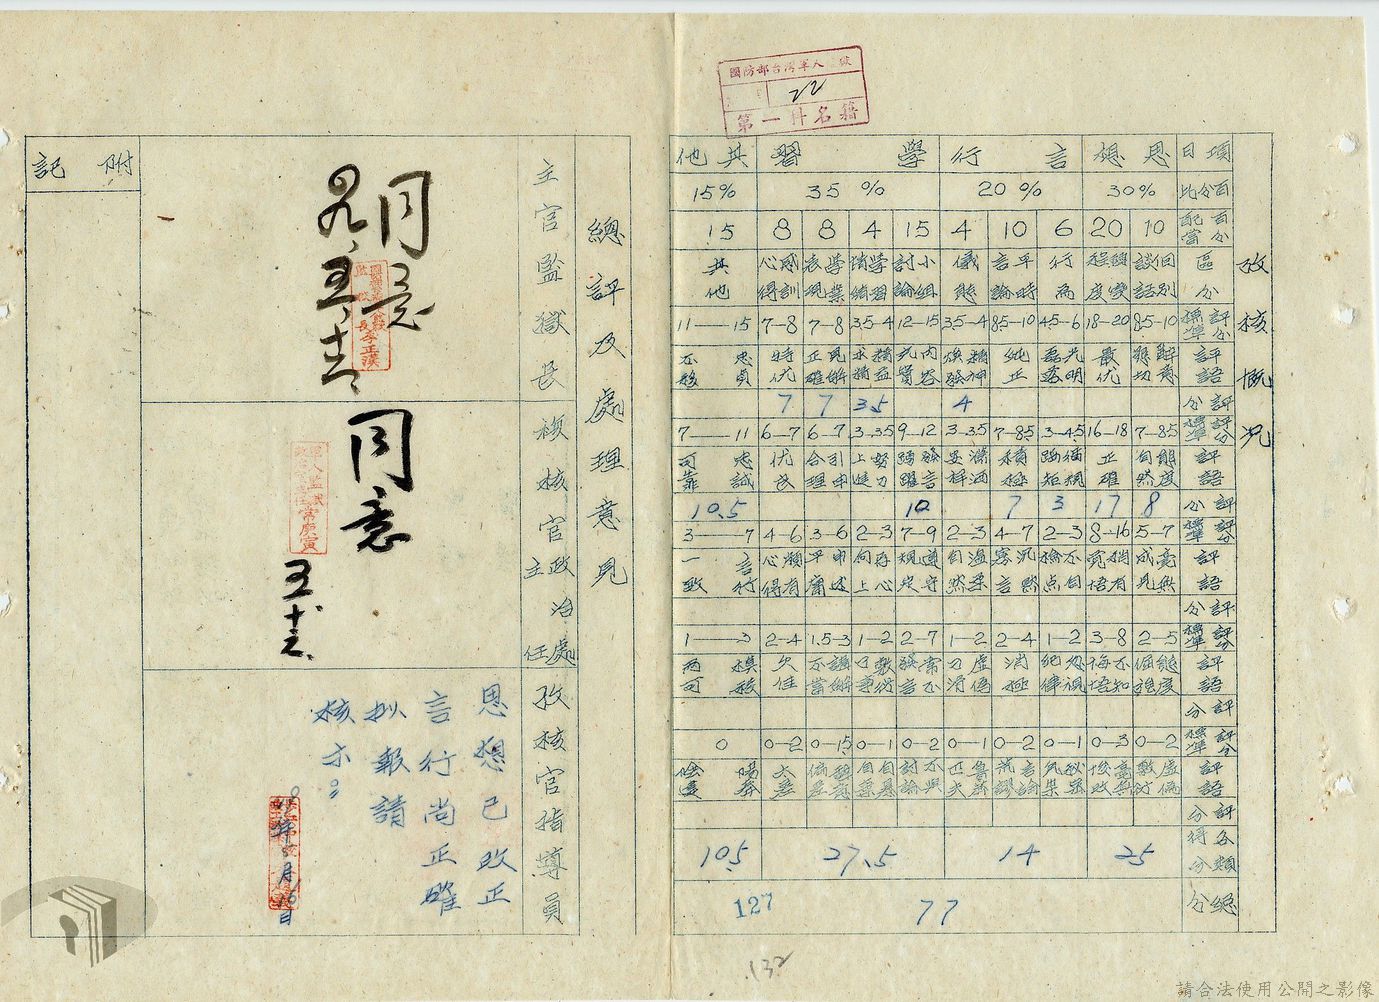 國防部台灣軍人監獄
22
第一科名籍
攷核概況
項目 思想 言行 學習 其他
百分比 30% 20% 35% 15%
百分配當 10 20 6 10 4 15 4 8 8 15
區分 個別談話 轉變程度 行為 平時言論 儀態 小組討論 學習情緒 學業表現 感訓心得 其他
評分標準 8.5-10 18-20 4.5-6 8.5-10 3.5-4 12-15 3.5-4 7-8 7-8 11—15
評語 解意懇切 最优 光明磊落 純正 精神煥發 內容充實 精益求精 見解正確 特优 忠貞不移
評分 4 3.5 7 7
評分標準 7-8.5 16-18 3-4.5 7-8.5 3-3.5 9-12 3-3.5 6-7 6-7 7—11
評語 態度自然 正確 循規蹈矩 積極 瀟洒安祥 發言踴躍 努力上進 引申合理 优良 忠誠可靠
評分 8 17 3 7 10 10.5
評分標準 5-7 8-16 2-3 4-7 2-3 7-9 2-3 3-6 4-6 3—7
評語 毫無成見 稍有覺悟 不自檢点 沉默寡言 溫柔自然 遵守規定 存心向上 申述平庸 頗有心得 言行一致
評分
評分標準 2-5 3-8 1-2 2-4 1-2 2-7 1-2 1.5-3 2-4 1—3
評語 態度倔強 不知悔悟 忽視紀律 消極 虛偽刁滑 常不發言 敷衍了事 講解不當 欠佳 模稜兩可
評分
評分標準 0-2 0-3 0-1 0-2 0-1 0-2 0-1 0-1.5 0-2 0
評語 虛偽敷衍 毫無悔改 言論荒謬 不與討論 自暴自棄 太差 陽奉陰違
評分
各類得分 25 14 27.5 10.5
總分 77
127
132
總評及處理意見
主官監獄長
同意
李正漢
複核官政治處主任
同意
常慶寅
五、十六、
攷核官指導員
思想已改正
言行尚正確
拟報請
核示。
附記
請合法使用公開之影像